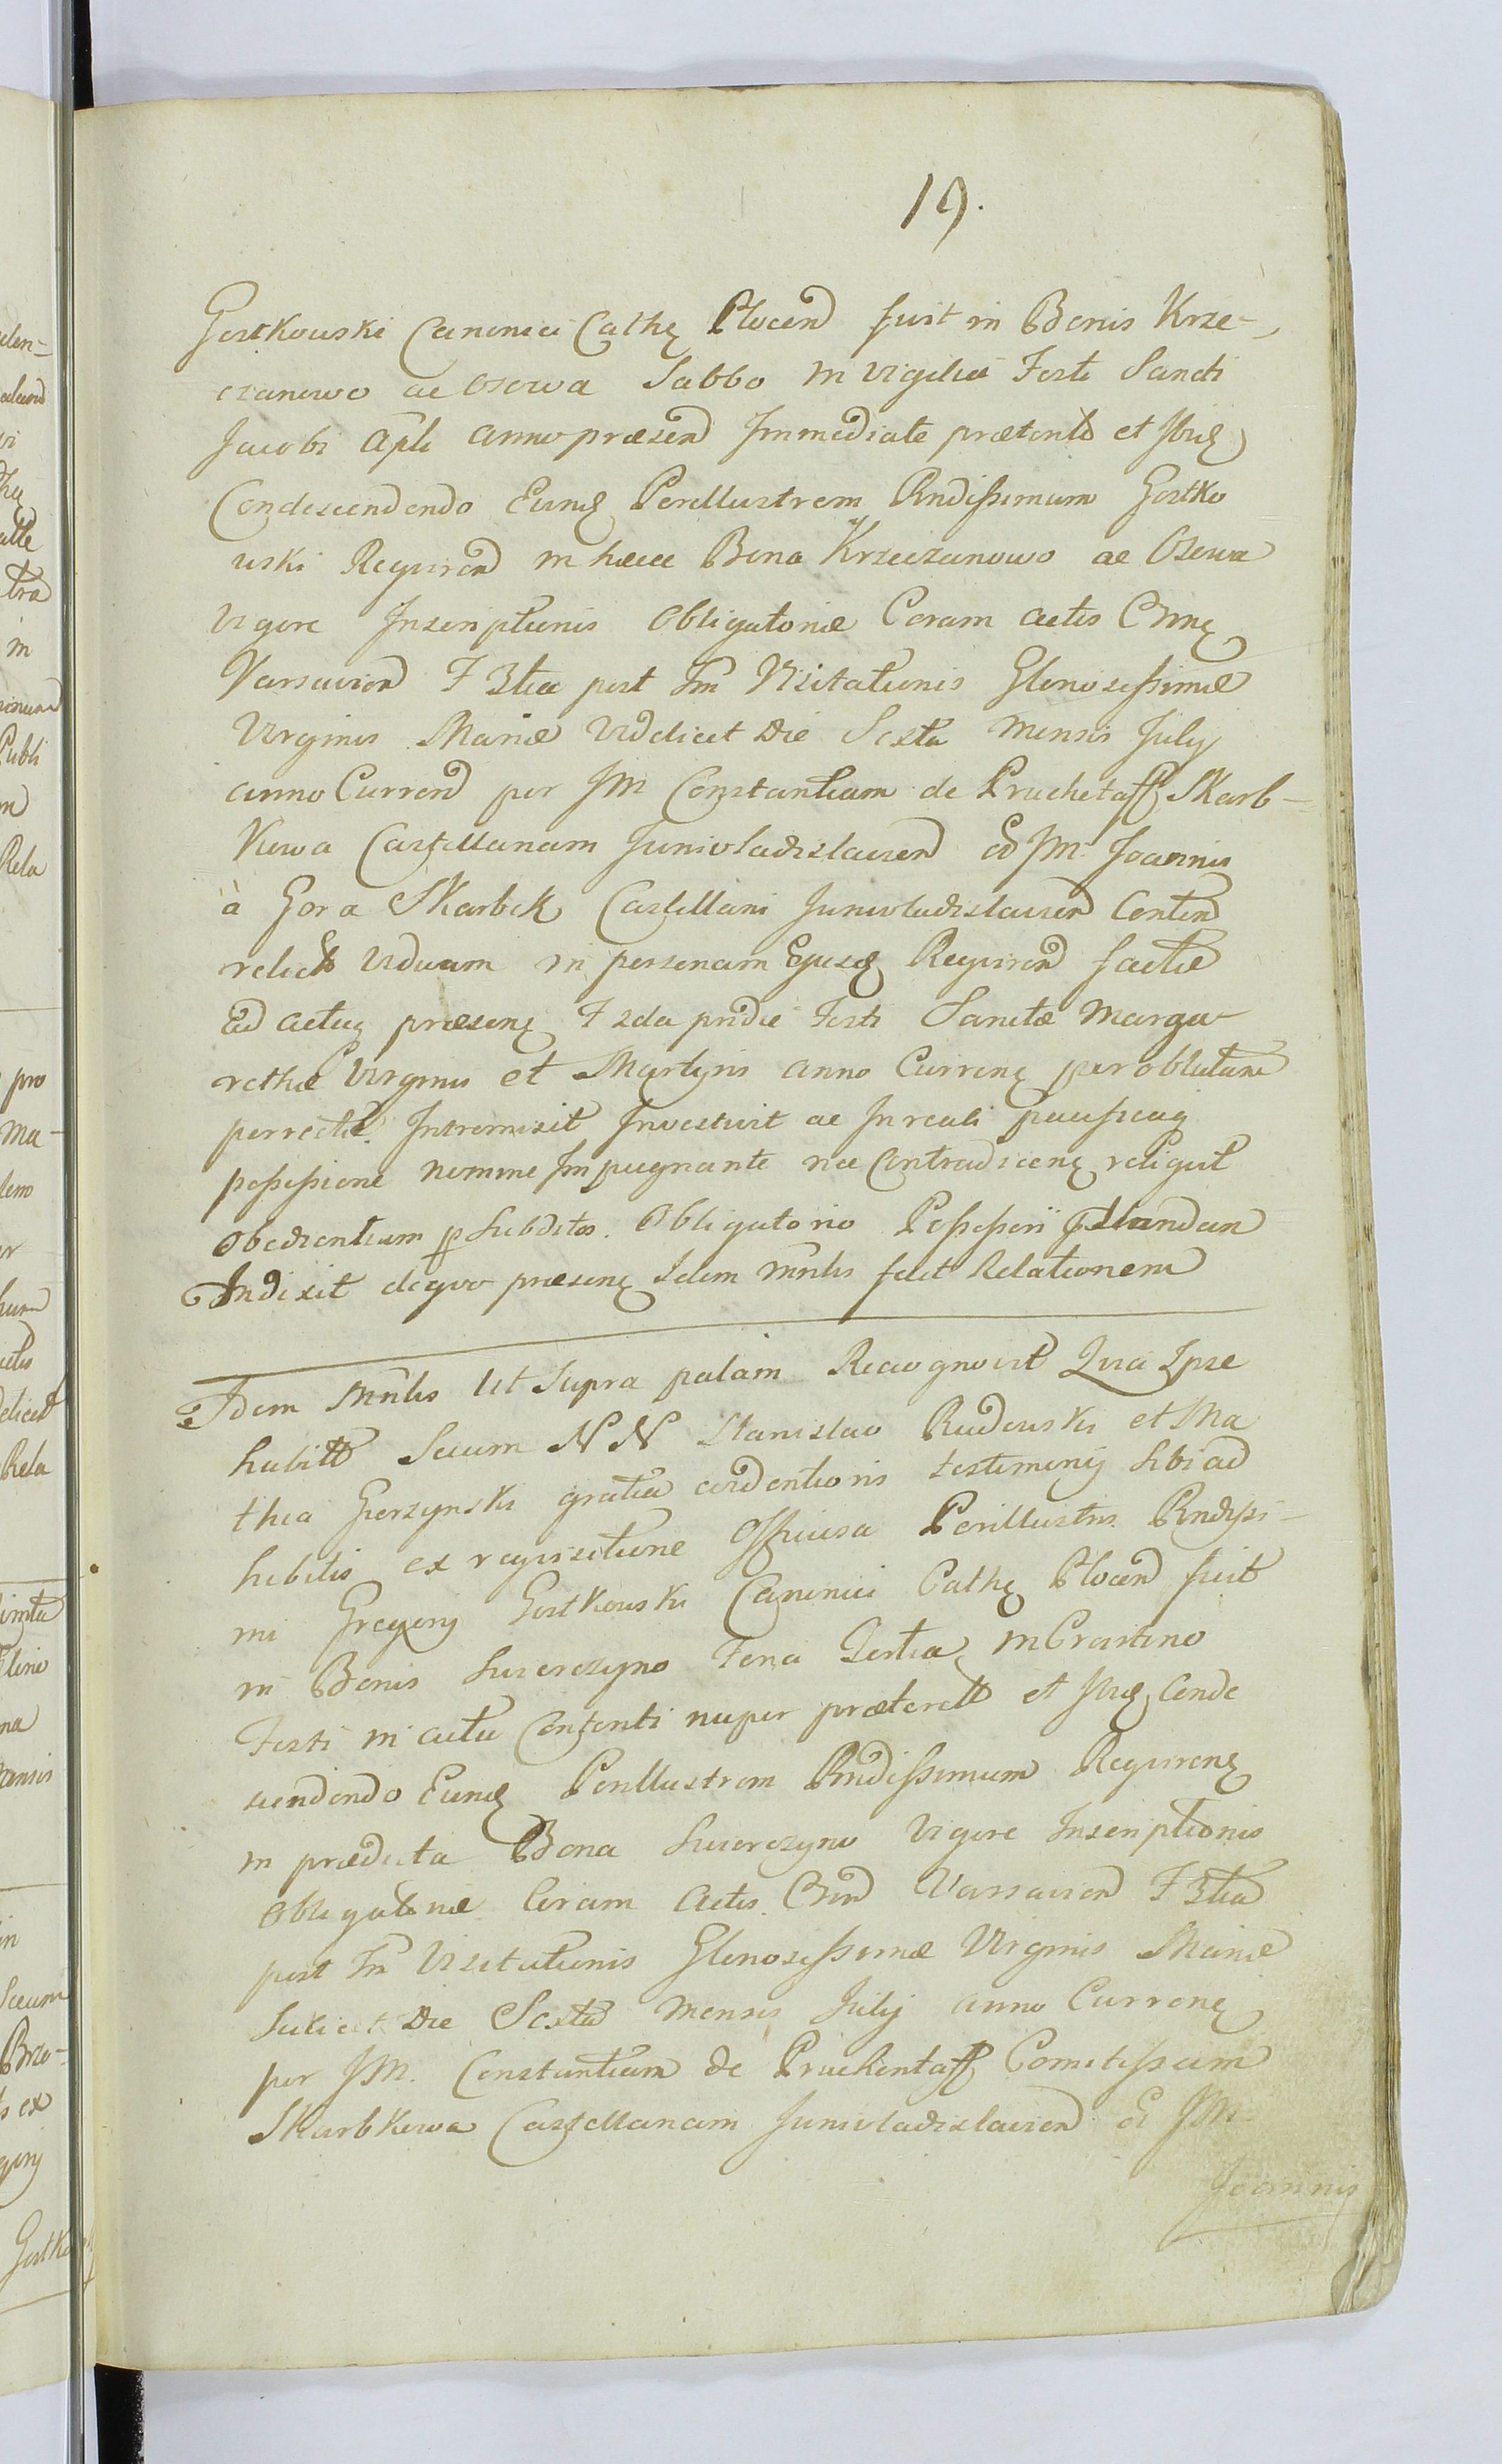 19.
Gostkowski Canonici Cathę Plocen fuit in Bonis Krze-
czanowo ac Osowa Sabbo in vigilia Festi Sancti
Jacobi Apli anno præsen Immediate præterito et Ibiq
Condescendendo Eunq Perillustrem Rndissimum Gostko
wski Requiren in hæce Bona Krzeczanowo ac Osowa
vigore Inscriptionis Obligatoriæ Coram actis
Varsavien F 3tia post Fm Visitationis Gloriosissimæ
Virginis Mariæ Videlicet Die Sexta Mensis July
anno Curren per JM Constantiam de Pruchetaff Skarb-
kowa Castellanam Junivladislavien JM Joannis
à Gora Skarbek Castellani Junivladislavien
relict Viduam in personam Ejusq Requiren factæ
ad actuę præsenę F 2da pridie Festi Sanctæ Marga-
rethæ Virginis et Martyris anno Currenę per oblatam
perrectæ. Intromisit Investivit ac In reali
possessione nemine Impugnante nec Contradicenę reliquit
Obedientiam p Subditos. Obligatorio Possessori
Indixit dequo præsenę Idem Mnlis fecit Relationem
Idem Mnlis Ut Supra palam Recognovit Quia Ipse
habitt Secum NN Stanislao Rudowski et Ma
thia Gorzynski gratia evidentioris testimonij Sibi ad
hibitis ex requisitione Officiosa Perillustris Rndissi-
mi Gregorij Gostkowski Canonici Cathę Plocen fuit
in Bonis Swierczyno Feria Tertia in Crastino
Festi in actu Contenti nuper præterett et Ibiq Conde
scendendo Eunq Perillustrem Rndissimum Requirenę
in prædicta Bona Swierczyno Vigore Inscriptionis
Obligatoriæ Coram Actis Varsavien F 3tia
post Fm Visitationis Gloriosissimæ Virginis Mariæ
Scilicet Die Sexta Mensis Julij anno Currenę
per JM. Constantiam de Pruchentaff Comitissam
Skarbkowa Castellanam Junivladislavien JM
Joannis